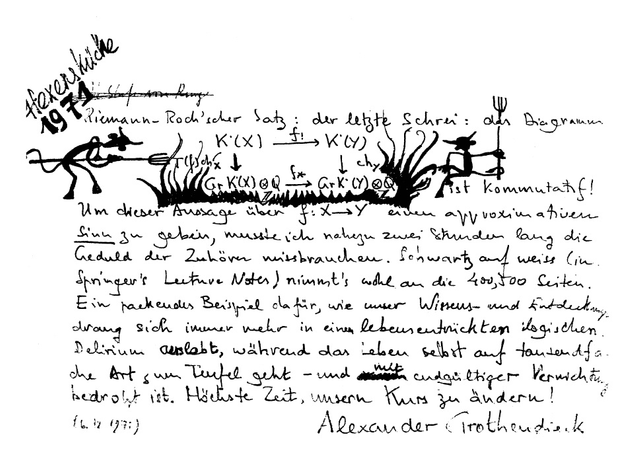 Hexenküche 1971
Riemann-Roch'scher Satz: der letzte Schrei: das Diagramm
K·(X) f! K·(Y)
T(f)chx chy
Gr K·(X)⊗Q f* Gr K·(Y)⊗Q
Z Z
ist kommutatif!
Um dieser Aussage über f: X → Y einen approximativen
Sinn zu geben, musste ich nahezu zwei Stunden lang die
Geduld der Zuhörer missbrauchen. Schwartz auf weiss (in
Springer's Lecture Notes) nimmt's wohl an die 400, 500 Seiten.
Ein packendes Beispiel dafür, wie unser Wissens- und Entdeckungs
drang sich immer mehr in einem lebensentrückten logischen
Delirium auslebt, während das Leben selbst auf tausendfa
che Art zum Teufel geht - und mit endgültiger Vernichtung
bedroht ist. Höchste Zeit, unsern Kurs zu ändern!
Alexander Grothendieck